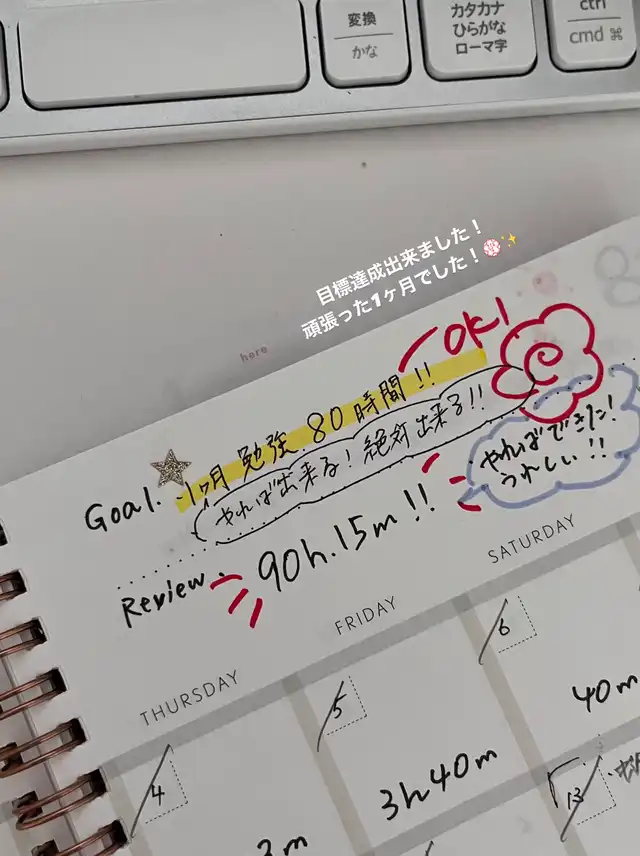 変換
かな
カタカナ
ひらがな
ローマ字
ctrl
cmd ⌘
目標達成出来ました！
頑張った1ヶ月でした！💮✨
here
OK!
Goal. 1ヶ月 勉強 80時間!!
やれば出来る! 絶対出来る!!
やればできた!
うれしい!!
Review. 90h.15m!!
THURSDAY
FRIDAY
SATURDAY
4
5
3h40m
6
40m
13